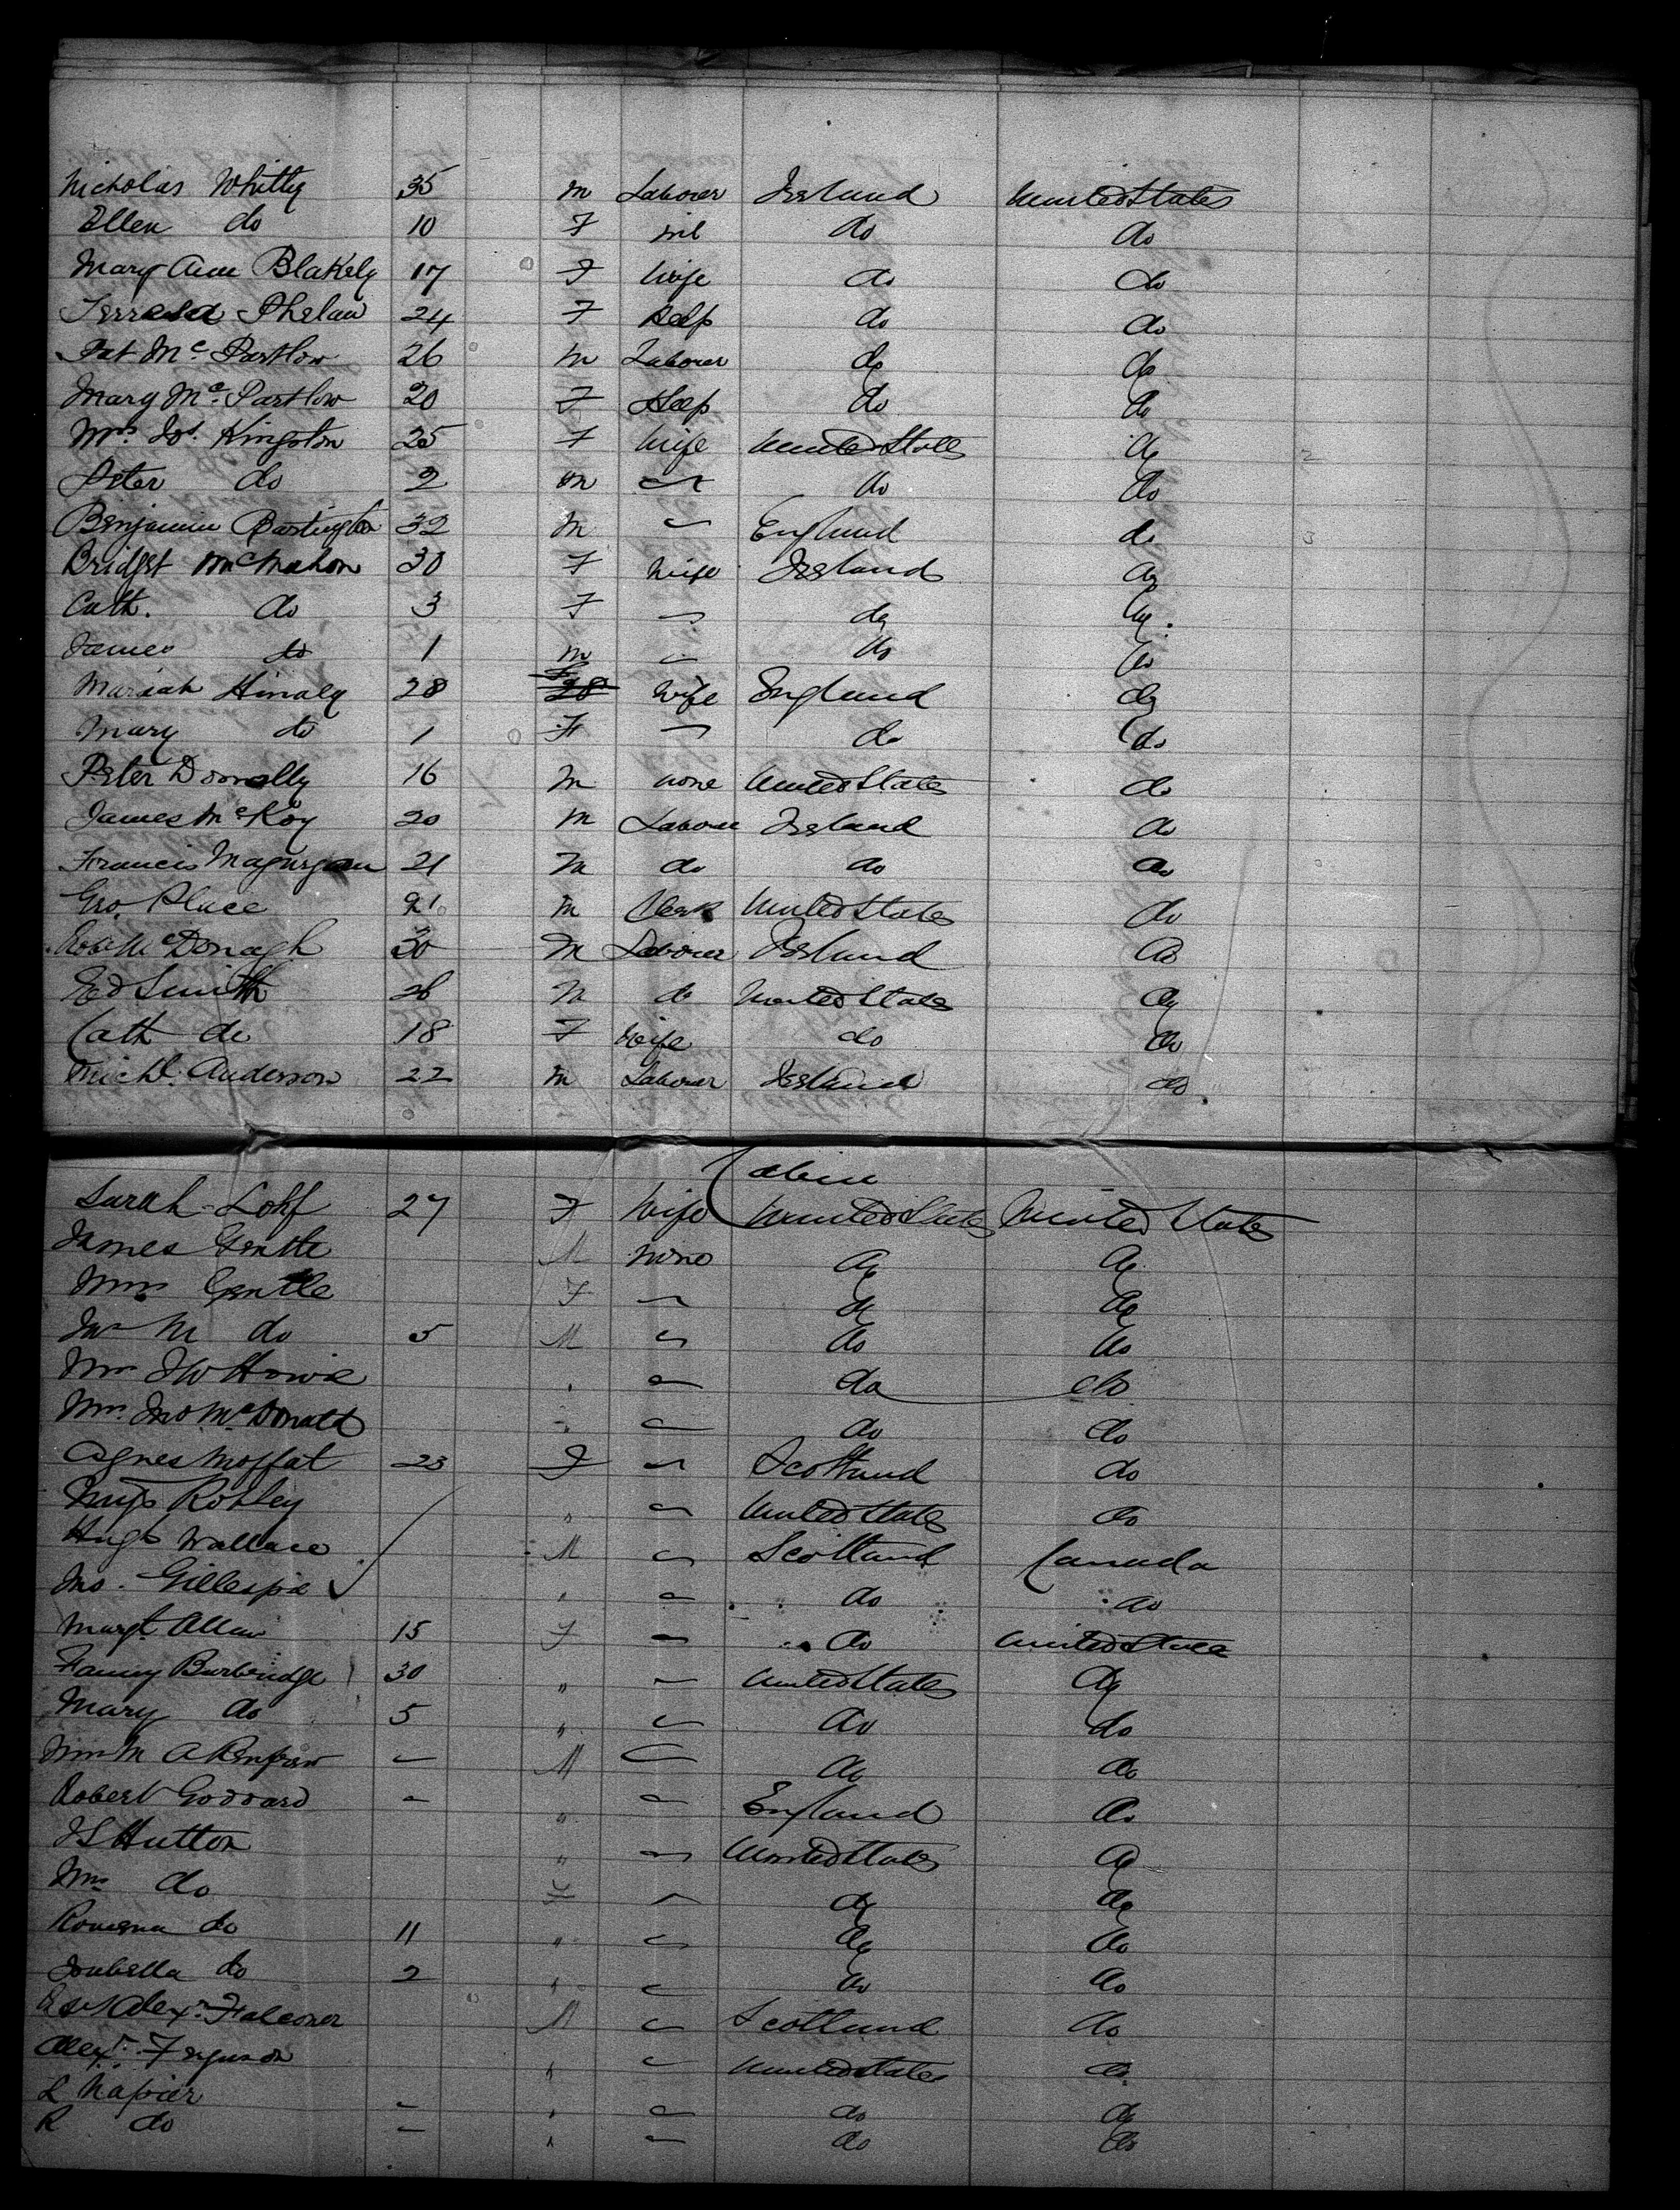 Nicholas Whitty 35 m Laborer Ireland United States
Ellen do 10 F do do
Mary Ann Blakely 17 F Wife do do
Terresa Phelan 24 F Help do do
Pat Mc Partlow 26 m Laborer do do
Mary Mc Partlow 20 F Help do do
Mrs Jos. Kingston 25 F Wife United States do
Peter do 2 m " do do
Benjamin Partington 32 M " England do
Bridget McMahon 30 F Wife Ireland do
Cath. do 3 F " do do
James do 1 m " do do
Mariah 28 F Wife England do
Mary do 1 F " do do
Peter Donnelly 16 m none United States do
James McKoy 20 m Labour Ireland do
Francis 21 M do do do
Geo. Place 21 m Clerk United States do
McDonagh 30 M Laborer Ireland do
Ed Smith 26 M do United States do
Cath do 18 F Wife do do
Michl. Anderson 22 m Laborer Ireland do
Cabin
Sarah 27 F Wife United States United States
James Gentle M none do do
Mrs Gentle F " do do
M do 5 M " do do
Mrs J W Howie " do do
Mrs. Jno McDonald " do do
Agnes Moffat 23 F " Scotland do
Miss Robley " " United States do
Hugh Wallace M " Scotland Canada
Jno. Gillespie " " do do
Margt. Allan 15 F " do United States
Fanny Burbridge 30 " " United States do
Mary do 5 " " do do
M A - M " do do
Robert Goddard - " " England do
J S Hutton " " United States do
Mrs do F " do do
Rowena do 11 " " do do
Isabella do 2 " " do do
Revd Alexr. Falconer M " Scotland do
Alexr. Ferguson " " United States do
L Napier - " " do do
R do - " " do do